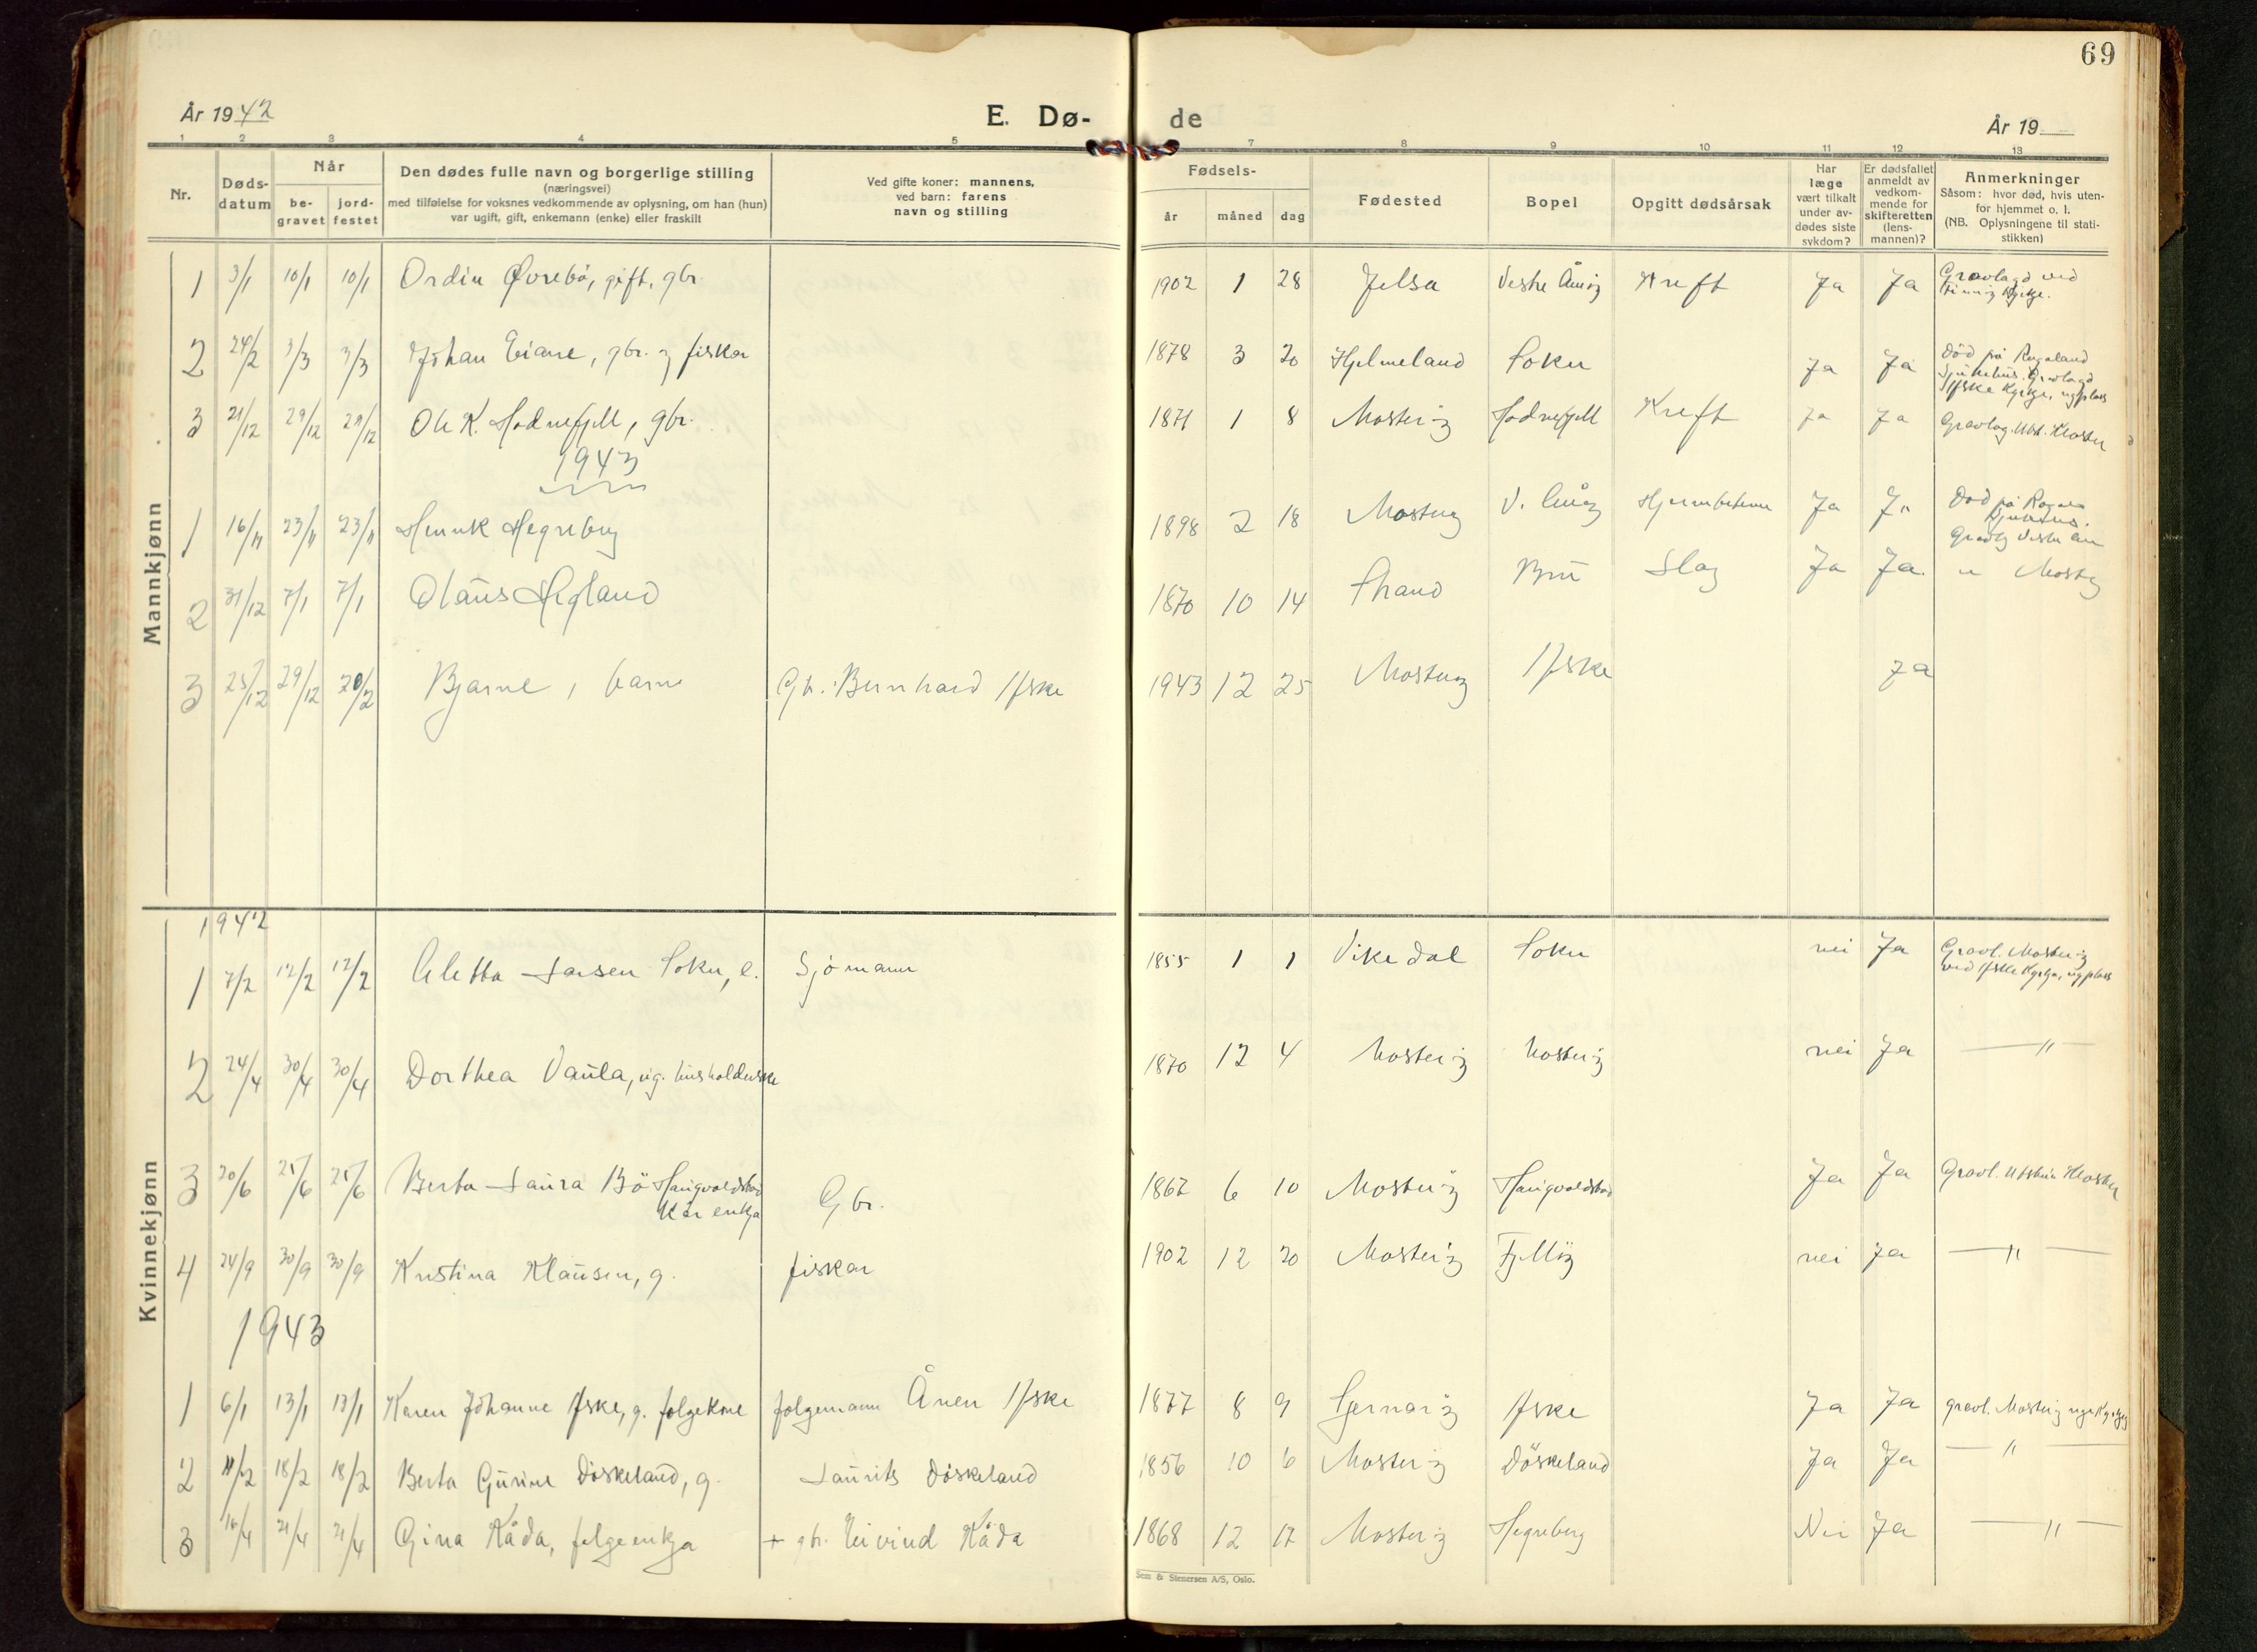 69
År 1942
E. Dø-
de
År 19
1 2 3 4 5 7 8 9 10 11 12 13
Nr.
Døds-
datum
Når
be-
gravet
jord-
festet
Den dødes fulle navn og borgerlige stilling
(næringsvei)
med tilføielse for voksnes vedkommende av oplysning, om han (hun)
var ugift, gift, enkemann (enke) eller fraskilt
Ved gifte koner: mannens,
ved barn: farens
navn og stilling
Fødsels-
år
måned
dag
Fødested
Bopel
Opgitt dødsårsak
Har
læge
vært tilkalt
under av-
dødes siste
sykdom?
Er dødsfallet
anmeldt av
vedkom-
mende for
skifteretten
(lens-
mannen)?
Anmerkninger
Såsom: hvor død, hvis uten-
for hjemmet o. l.
(NB. Oplysningene til stati-
stikken)
Mannkjønn
1 3/1 10/1 10/1 Ordin Øvrebö, gift, gbr. 1902 1 28 Jelsa Vestre Åmöy Kreft Ja Ja Gravlagd ved
kyrkje.
2 24/2 3/3 3/3 Johan Eiane, gbr. og fiskar 1878 3 20 Hjelmeland Soku Ja Ja Död på Rogaland
Sjukehus. Gravlagd
Ifske Kyrkje, ny plass
3 21/12 29/12 29/12 Ole K. Hodnefjell, gbr. 1871 1 8 Mosteröy Hodnefjell Kreft Ja Ja Gravlag. Utst. Kloster
1943
1 16/11 23/11 23/11 Henrik Hegreberg 1898 2 18 Mosteröy V. Åmöy Ja Ja Död på
Gravlg Vestre
2 31/12 7/1 7/1 Olaus Hegland 1870 10 14 Strand Bru Slag Ja Ja " Mosteröy
3 25/12 29/12 20/2 Bjarne, barn Gbr. Bernhard Ifske 1943 12 25 Mosteröy Ifske Ja
Kvinnekjønn
1942
1 7/2 12/2 12/2 Aletta Larsen Soku, e. Sjömann 1855 1 1 Vikedal Soku nei Ja Gravl. Mosteröy
ved Ifske Kyrkja, ny plass
2 24/4 30/4 30/4 Dorthea Vaula, ug. husholderske 1870 12 4 Mosteröy Mosteröy nei Ja — " —
3 20/6 25/6 25/6 Berta Laura Bö Haugvaldstad
kår enkja Gbr. 1867 6 10 Mosteröy Haugvaldstad Ja Ja Gravl. Utstein Kloster
4 24/9 30/9 30/9 Kristina Klausen, g. fiskar 1902 12 20 Mosteröy Fjellöy nei Ja — " —
1943
1 6/1 13/1 13/1 Karen Johanne Ifske, g. folgekone folgemann Ånen Ifske 1877 8 9 Sjernaröy Ifske Ja Ja gravl. Mosteröy nye Kyrkjeg
2 11/2 18/2 18/2 Berta Gurine Döskeland, g. Laurits Döskeland 1856 10 6 Mosteröy Döskeland Ja Ja — " —
3 21/4 21/4 Gina Kåda, folgeenkja + gbr. Eivind Kåda 1868 12 17 Mosteröy Hegreberg Nei Ja — " —
Sem & Stenersen A/S, Oslo.